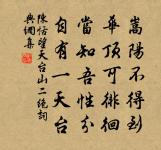 嵩陽不得到
華頂可徘徊
當知吾性分
自有一天台
陳恬望天台山二絕詞
典網集